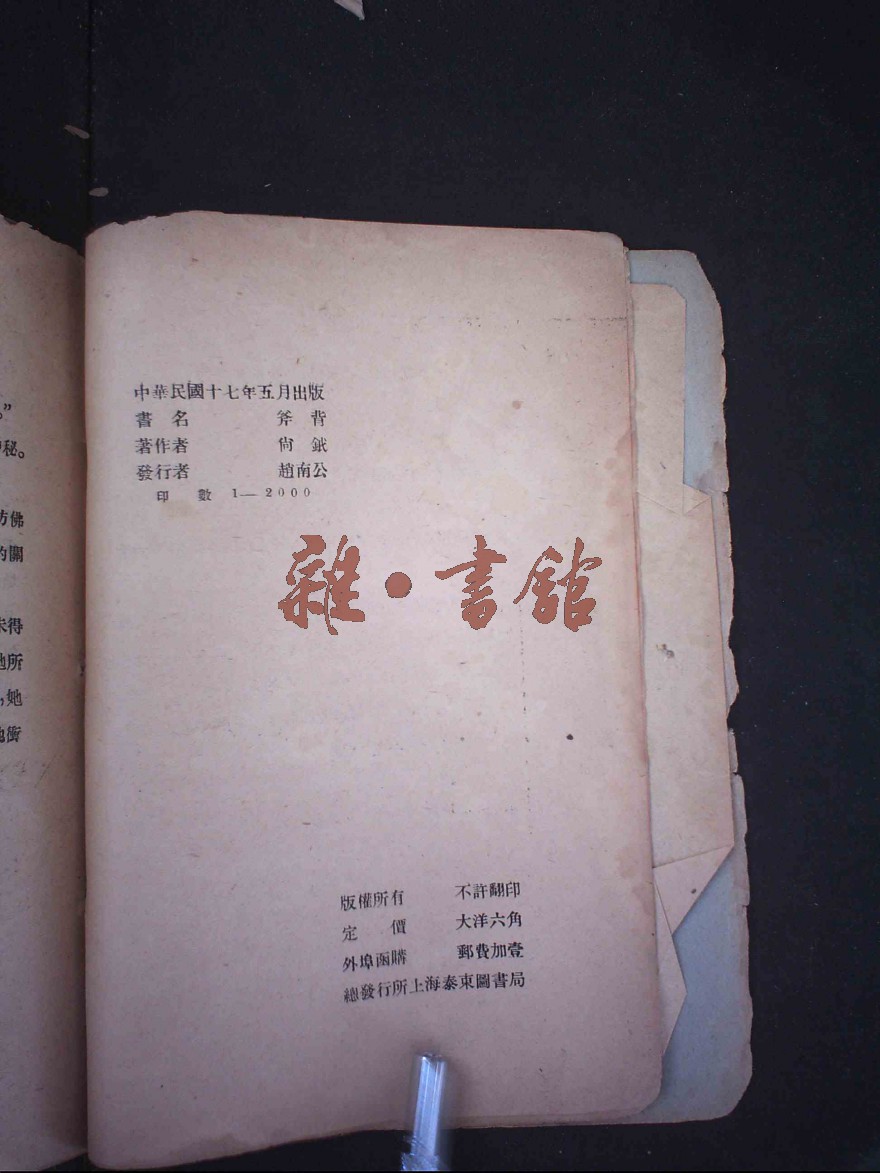 ”
秘。
彷佛
的關
未得
她所
，她
地衝
中華民國十七年五月出版
書名 斧背
著作者 尙鉞
發行者 趙南公
印數 1—2000
雜·書館
版權所有 不許翻印
定價 大洋六角
外埠函購 郵費加壹
總發行所上海泰東圖書局